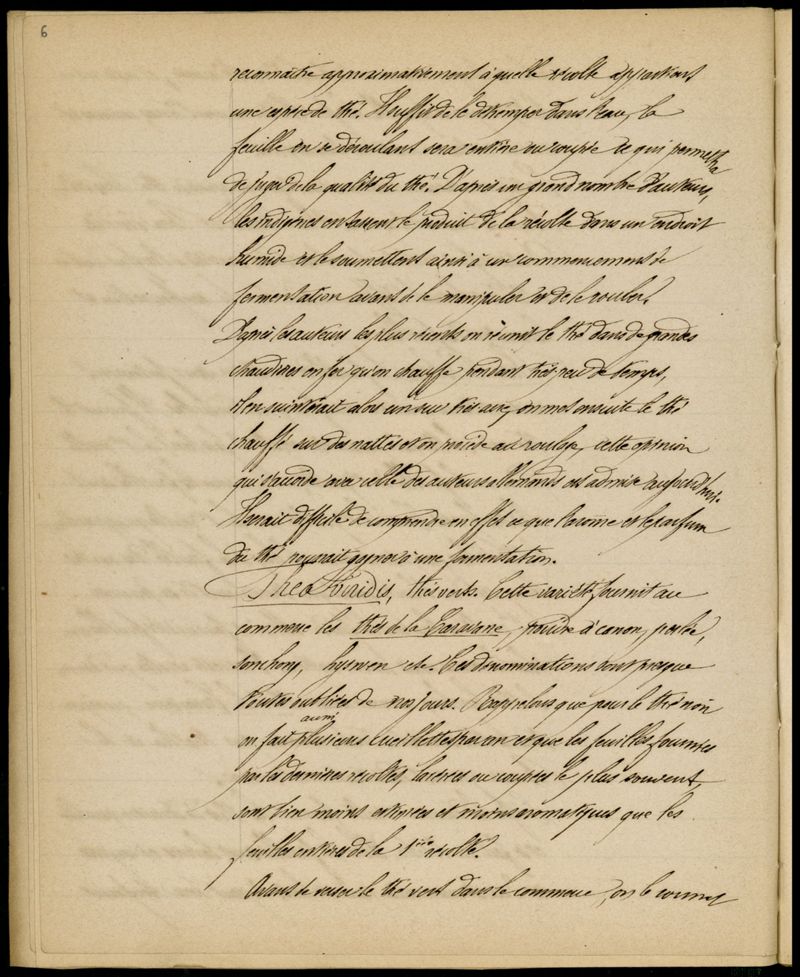 6
reconnaître approximativement à quelle récolte appartient
une espèce de thé. Il suffit de le détremper dans l'eau, la
feuille en se déroulant sera entière ou coupée ce qui permettra
de juger de la qualité du thé. D'après un grand nombre d'auteurs,
les indigènes entassent le produit de la récolte dans un endroit
humide et le soumettent ainsi à un commencement de
fermentation avant de le manipuler et de le rouler.
D'après les auteurs les plus récents on réunit le thé dans de grandes
chaudières en fer qu'on chauffe pendant très peu de temps,
il en suinterait alors un suc très âcre, on met ensuite le thé
chauffé sur des nattes et on procède au roulage, cette opinion
qui s'accorde avec celle des auteurs allemands est admise aujourd'hui.
Il serait difficile de comprendre en effet ce que l'arome et le parfum
du thé pourrait gagner à une fermentation.
Thea Viridis, thés verts. Cette variété fournit au
commerce les thés de la Caravane, poudre à canon, perlée,
sonchong, hyswen etc. Ces dénominations sont presque
toutes oubliées de nos jours. Rappelons que pour le thé noir
on fait aussi plusieurs cueillettes par an et que les feuilles fournies
par les dernières récoltes, lacérées ou coupées le plus souvent,
sont bien moins estimées et moins aromatiques que les
feuilles entières de la 1ière récolte.
Avant de verser le thé vert dans le commerce, on le soumet